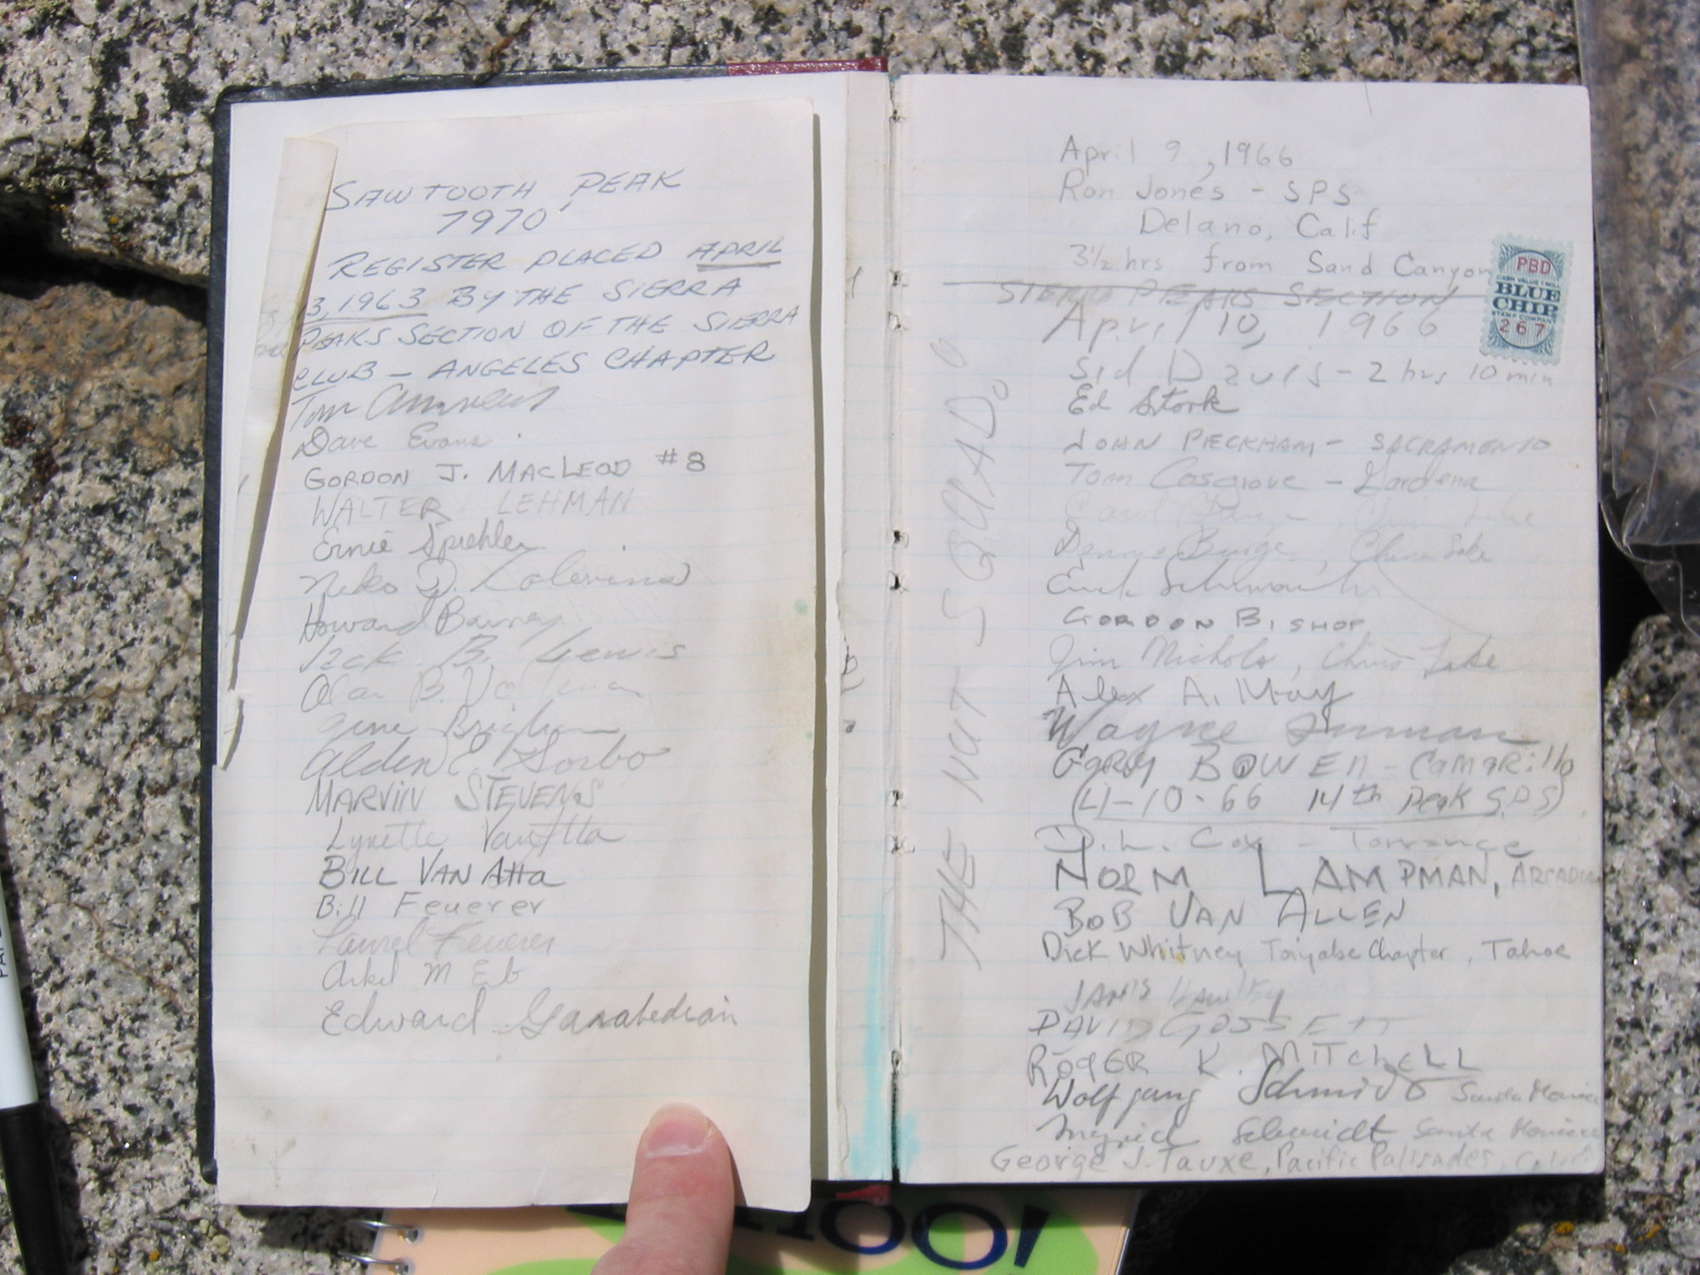 SAWTOOTH PEAK
7970'
REGISTER PLACED APRIL
3, 1963 BY THE SIERRA
PEAKS SECTION OF THE SIERRA
CLUB – ANGELES CHAPTER
Tom
Dave Evans
GORDON J. MACLEOD #8
WALTER LEHMAN
Ernie Spiehler
Neko
Howard Barney
Jack B. Lewis
B.
Gene
Alden E. Sorbo
MARVIN STEVENS
Lynette VanAtta
BILL VAN AttA
Bill Feuerer
Laurel Feuerer
Edward Garabedian
April 9, 1966
Ron Jones - SPS
Delano, Calif
3½ hrs from Sand Canyon
SIERRA PEAKS SECTION
April 10, 1966
Sid Davis - 2 hrs 10 min
Ed Stork
JOHN PECKHAM - SACRAMENTO
Tom Cosgrove - Gardena
Carol Burge, China Lake
Dennis Burge, China Lake
GORDON BISHOP
Jim Nichols, China Lake
Alex A. May
Wayne Inman
GARY BOWEN - CAMARillo
(4-10-66 14th PEAK SPS)
D.L. Cox - Torrance
NORM LAMPMAN, ARCADIA
BOB VAN ALLEN
Dick Whitney Toiyabe Chapter, Tahoe
JANIS
DAVID GOSSETT
ROGER K. MITCHELL
Wolfgang Schmidt Santa Monica
Ingrid Schmidt Santa Monica
George J. Tauxe, Pacific Palisades, Calif
THE NUT SQUAD
PBD
BLUE
CHIP
STAMP COMPANY
267